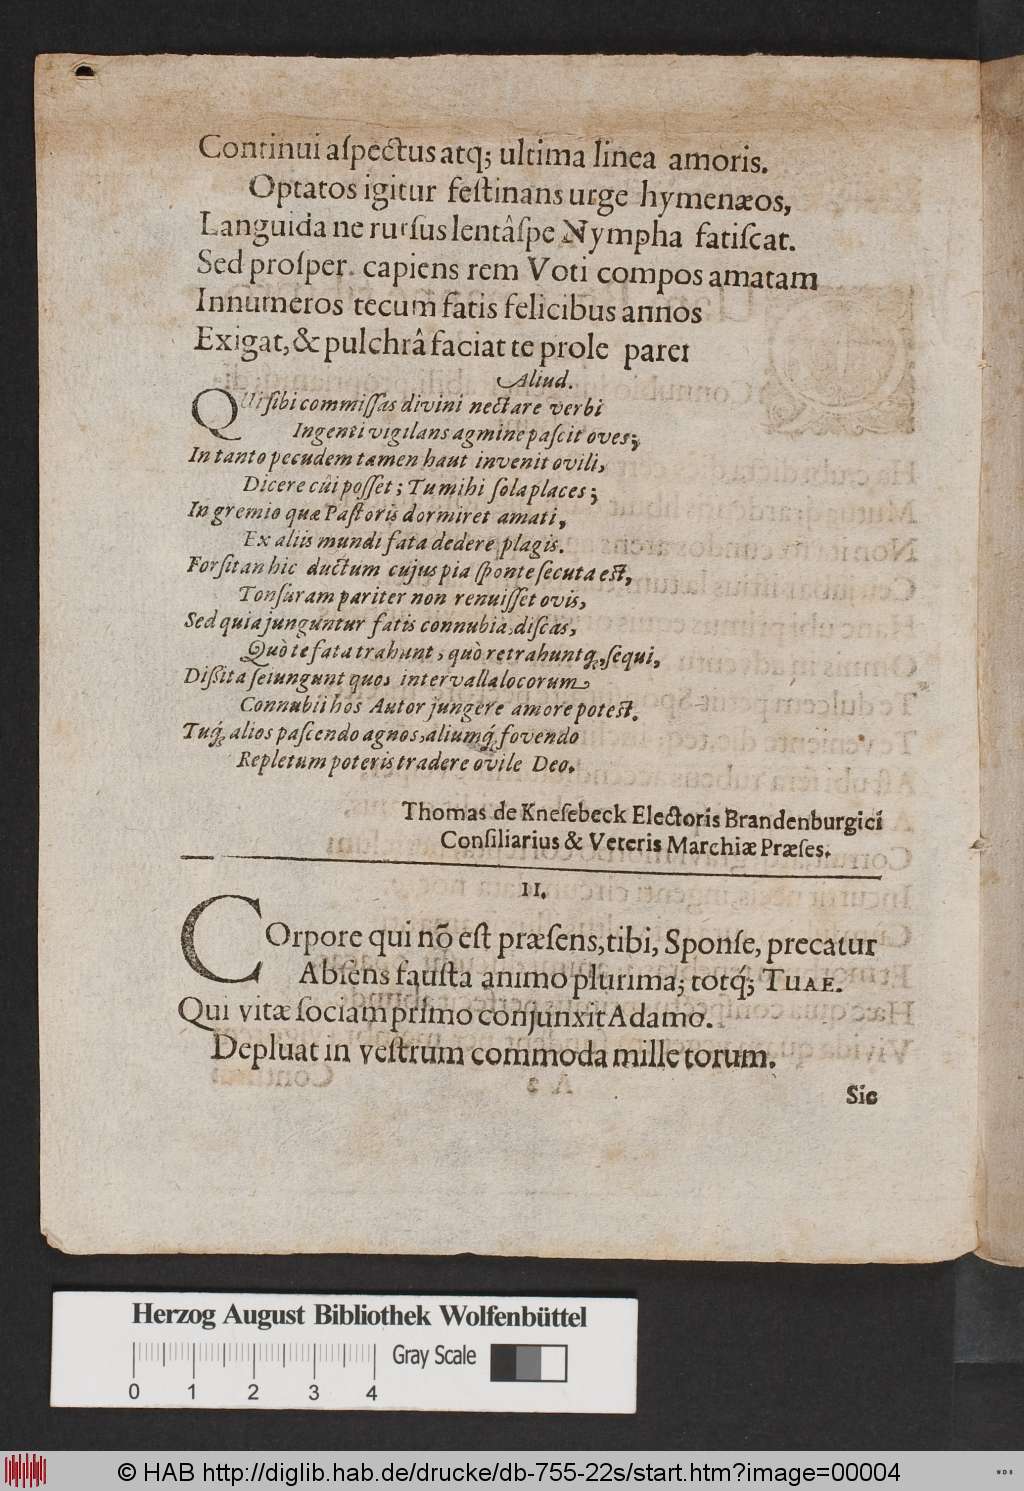 Continui aſpectus atq; ultima linea amoris.
Optatos igitur feſtinans urge hymenæos,
Languida ne rurſus lentâſpe Nympha fatiſcat.
Sed proſper. capiens rem Voti compos amatam
Innumeros tecum fatis felicibus annos
Exigat, & pulchrâ faciat te prole paret
Aliud.
QUi ſibi commiſſas divini nectare verbi
Ingenti vigilans agmine paſcit oves;
In tanto pecudem tamen haut invenit ovili,
Dicere cûi poſſet; Tu mihi ſola places;
In gremio quæ Paſtoris dormiret amati,
Ex aliis mundi fata dedere plagis.
Forſitan hic ductum cujus pia ſponte ſecuta eſt,
Tonſuram pariter non renuiſſet ovis,
Sed quia junguntur fatis connubia, diſcas,
Quò te fata trahunt, quò retrahuntq́, ſequi,
Diſſita ſeiungunt quos intervalla locorum
Connubii hos Autor jungere amore poteſt.
Tuq́, alios paſcendo agnos, aliumq́, fovendo
Repletum poteris tradere ovile Deo.
Thomas de Kneſebeck Electoris Brandenburgici
Conſiliarius & Veteris Marchiæ Præſes.
II.
COrpore qui nõ eſt præſens, tibi, Sponſe, precatur
Abſens fauſta animo plurima; totq́; TUAE.
Qui vitæ ſociam primo conjunxit Adamo.
Depluat in veſtrum commoda mille torum.
Sic
Herzog August Bibliothek Wolfenbüttel
Gray Scale
0 1 2 3 4
© HAB http://diglib.hab.de/drucke/db-755-22s/start.htm?image=00004